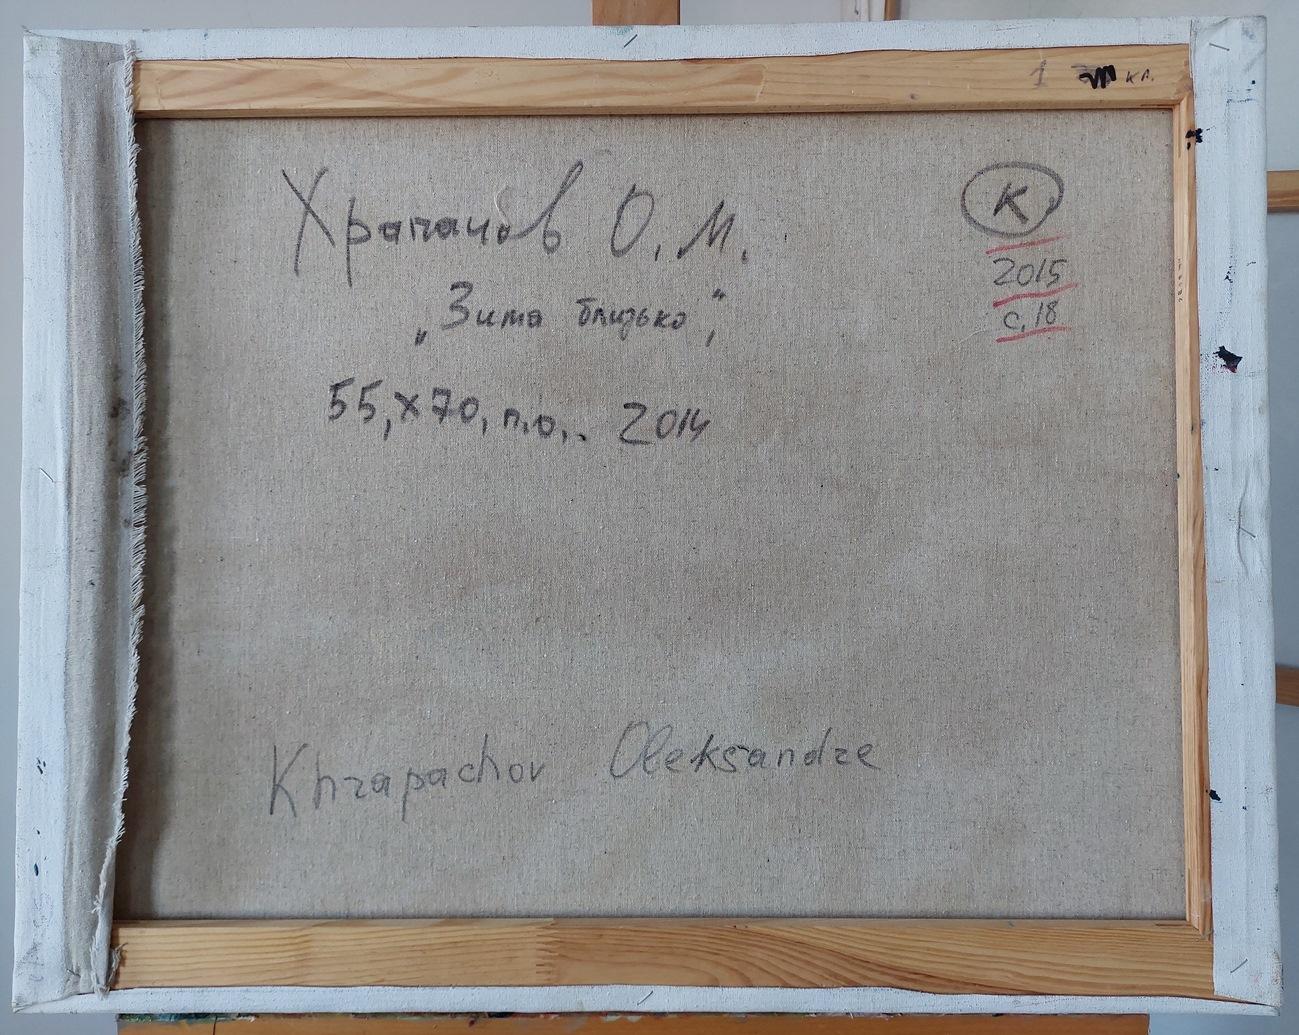 1 кл.
Храпачов О. М.
К
„Зима близько",
2015
с. 18
55,х70, п.о,. 2014
Khrapachov Oleksandre